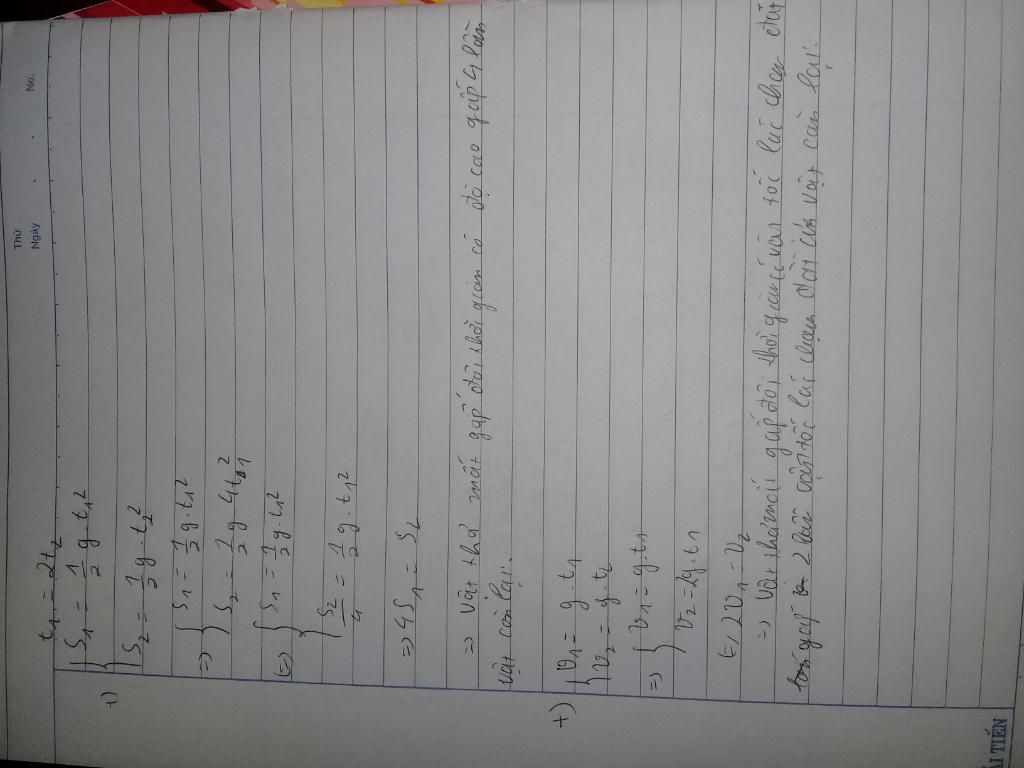 Thứ
Ngày
No.
t₁ = 2t₂
+) { S₁ = 1/2 g · t₁²
S₂ = 1/2 g · t₂²
=> { S₁ = 1/2 g · t₁²
S₂ = 1/2 g · 4t₁²
(=) { S₁ = 1/2 g · t₁²
S₂/4 = 1/2 g · t₁²
=> 4S₁ = S₂
=> Vật thứ mất gấp đôi thời gian có độ cao gấp 4 lần
vật còn lại.
+) { v₁ = g · t₁
v₂ = g · t₂
=> { v₁ = g · t₁
v₂ = 2g · t₁
(=) 2v₁ = v₂
=> Vật gấp đôi thời gian có vận tốc lúc chạm đất
gấp 2 lần vận tốc lúc chạm đất của vật còn lại.
ẢI TIẾN